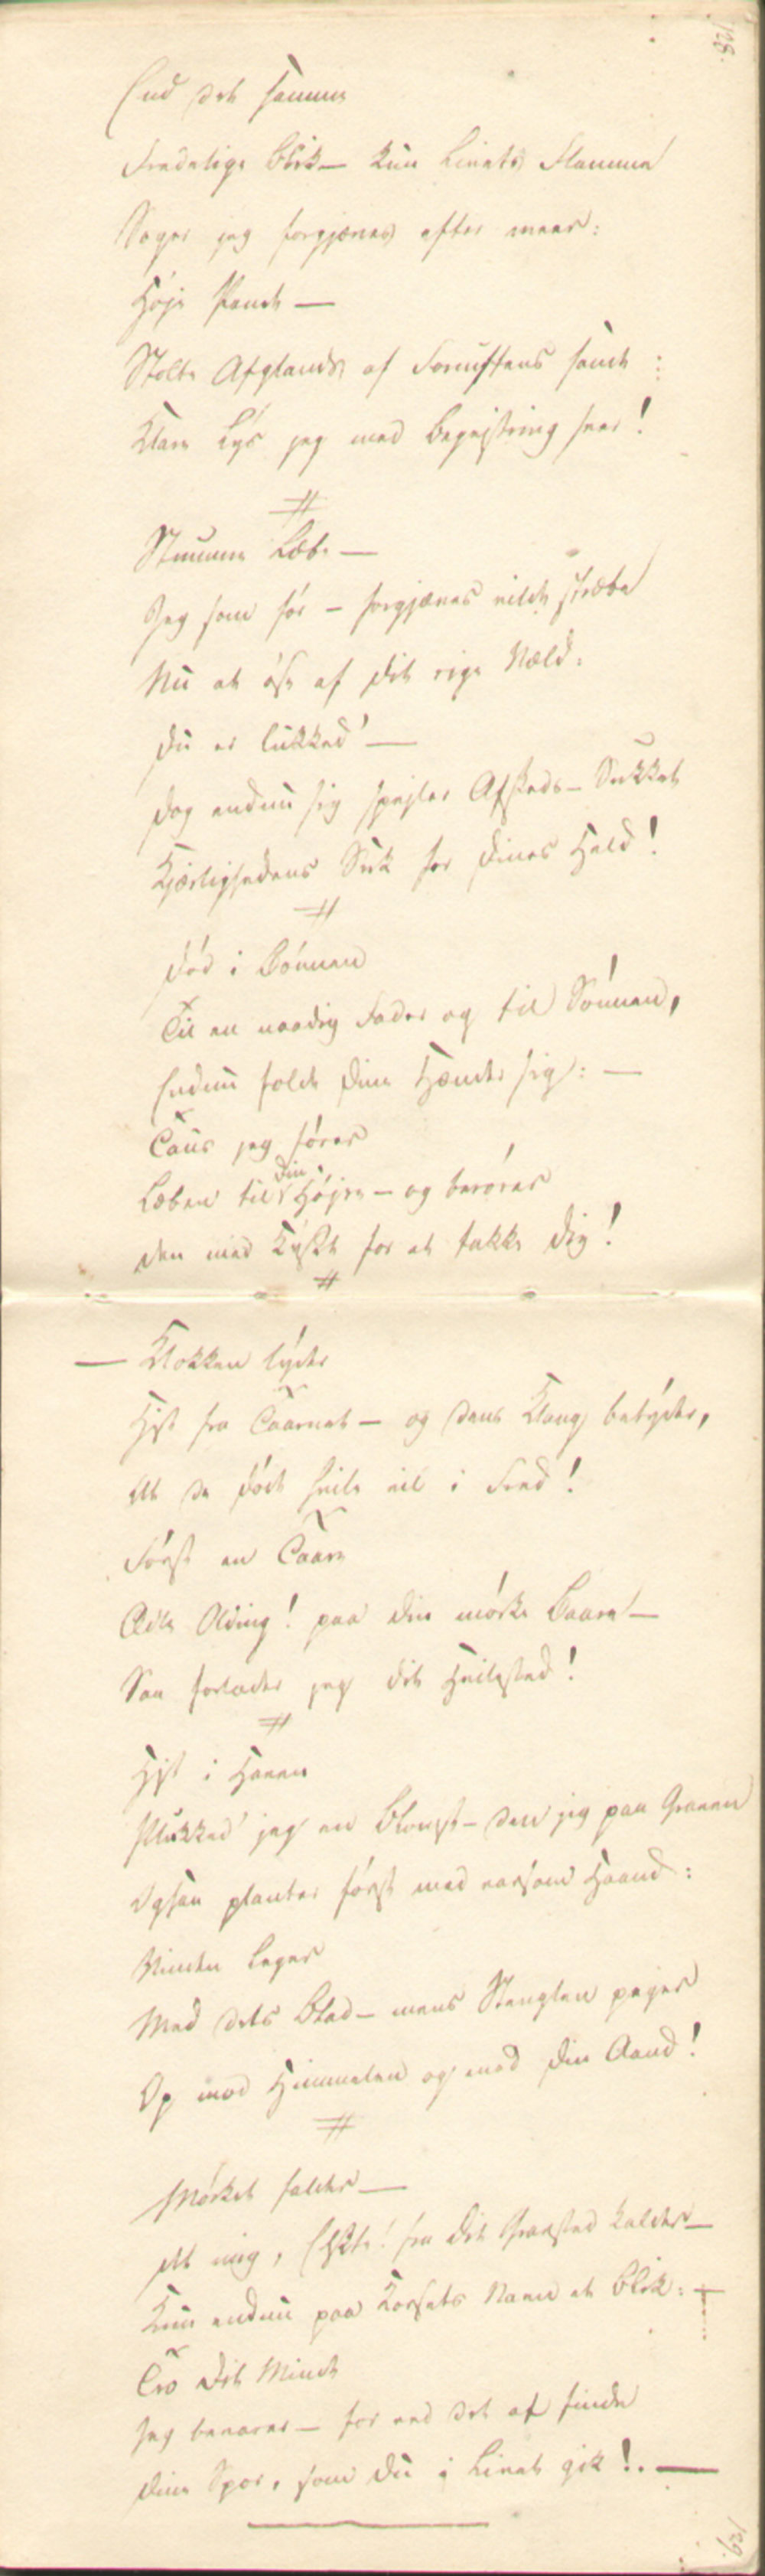 End det samme
Fredelige Blik — kun Livets Flamme
Søger jeg forgjæves efter meer:
Høje Pande —
Stolte Afglands af Fornuftens sande
Klare Lys jeg med Begejstring seer!
#
Stumme Læbe —
Jeg som før — forgjæves vilde stræbe
Nu at øse af dit rige Væld:
Du er lukked' —
Dog endnu sig spejler Afskeds-Sukket
Kjærlighedens Suk for dines Held!
#
Død i Bønnen
Til en naadig Fader og til Sønnen,
Endnu folde dine Hænder sig: —
Taus jeg fører
Læben til din Højre — og berører
Den med Kysset for at takke dig!
#
— Klokken lyder
Hist fra Taarnet — og dens Klang betyder,
At de døde hvile vil i Fred!
Først en Taare
Ædle Olding! paa din mørke Baare —
Saa forlader jeg dit Hvilested!
#
Hist i Haven
Plukked' jeg en Blomst — den jeg paa Graven
Ogsaa planter først med varsom Haand:
Vinden leger
Med dets Blad — mens Stænglen peger
Op mod Himmelen og mod din Aand!
#
Mørket falder —
Alt mig, Elskte! fra dit Gravsted kalder —
Kun endnu paa Korsets Navn et Blik: —
Tro dit Minde
Jeg bevarer — for ved det at finde
Dine Spor, som du i Livet gik! . —